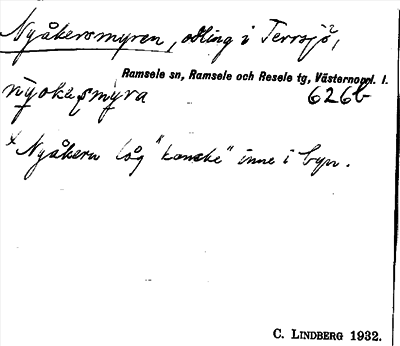 Nyåkersmyren, odling i Terrsjö,
Ramsele sn, Ramsele och Resele tg, Västernorrl. l.
nyokasmyra 626b
Nyåkern låg "kanske" inne i byn.
C. LINDBERG 1932.